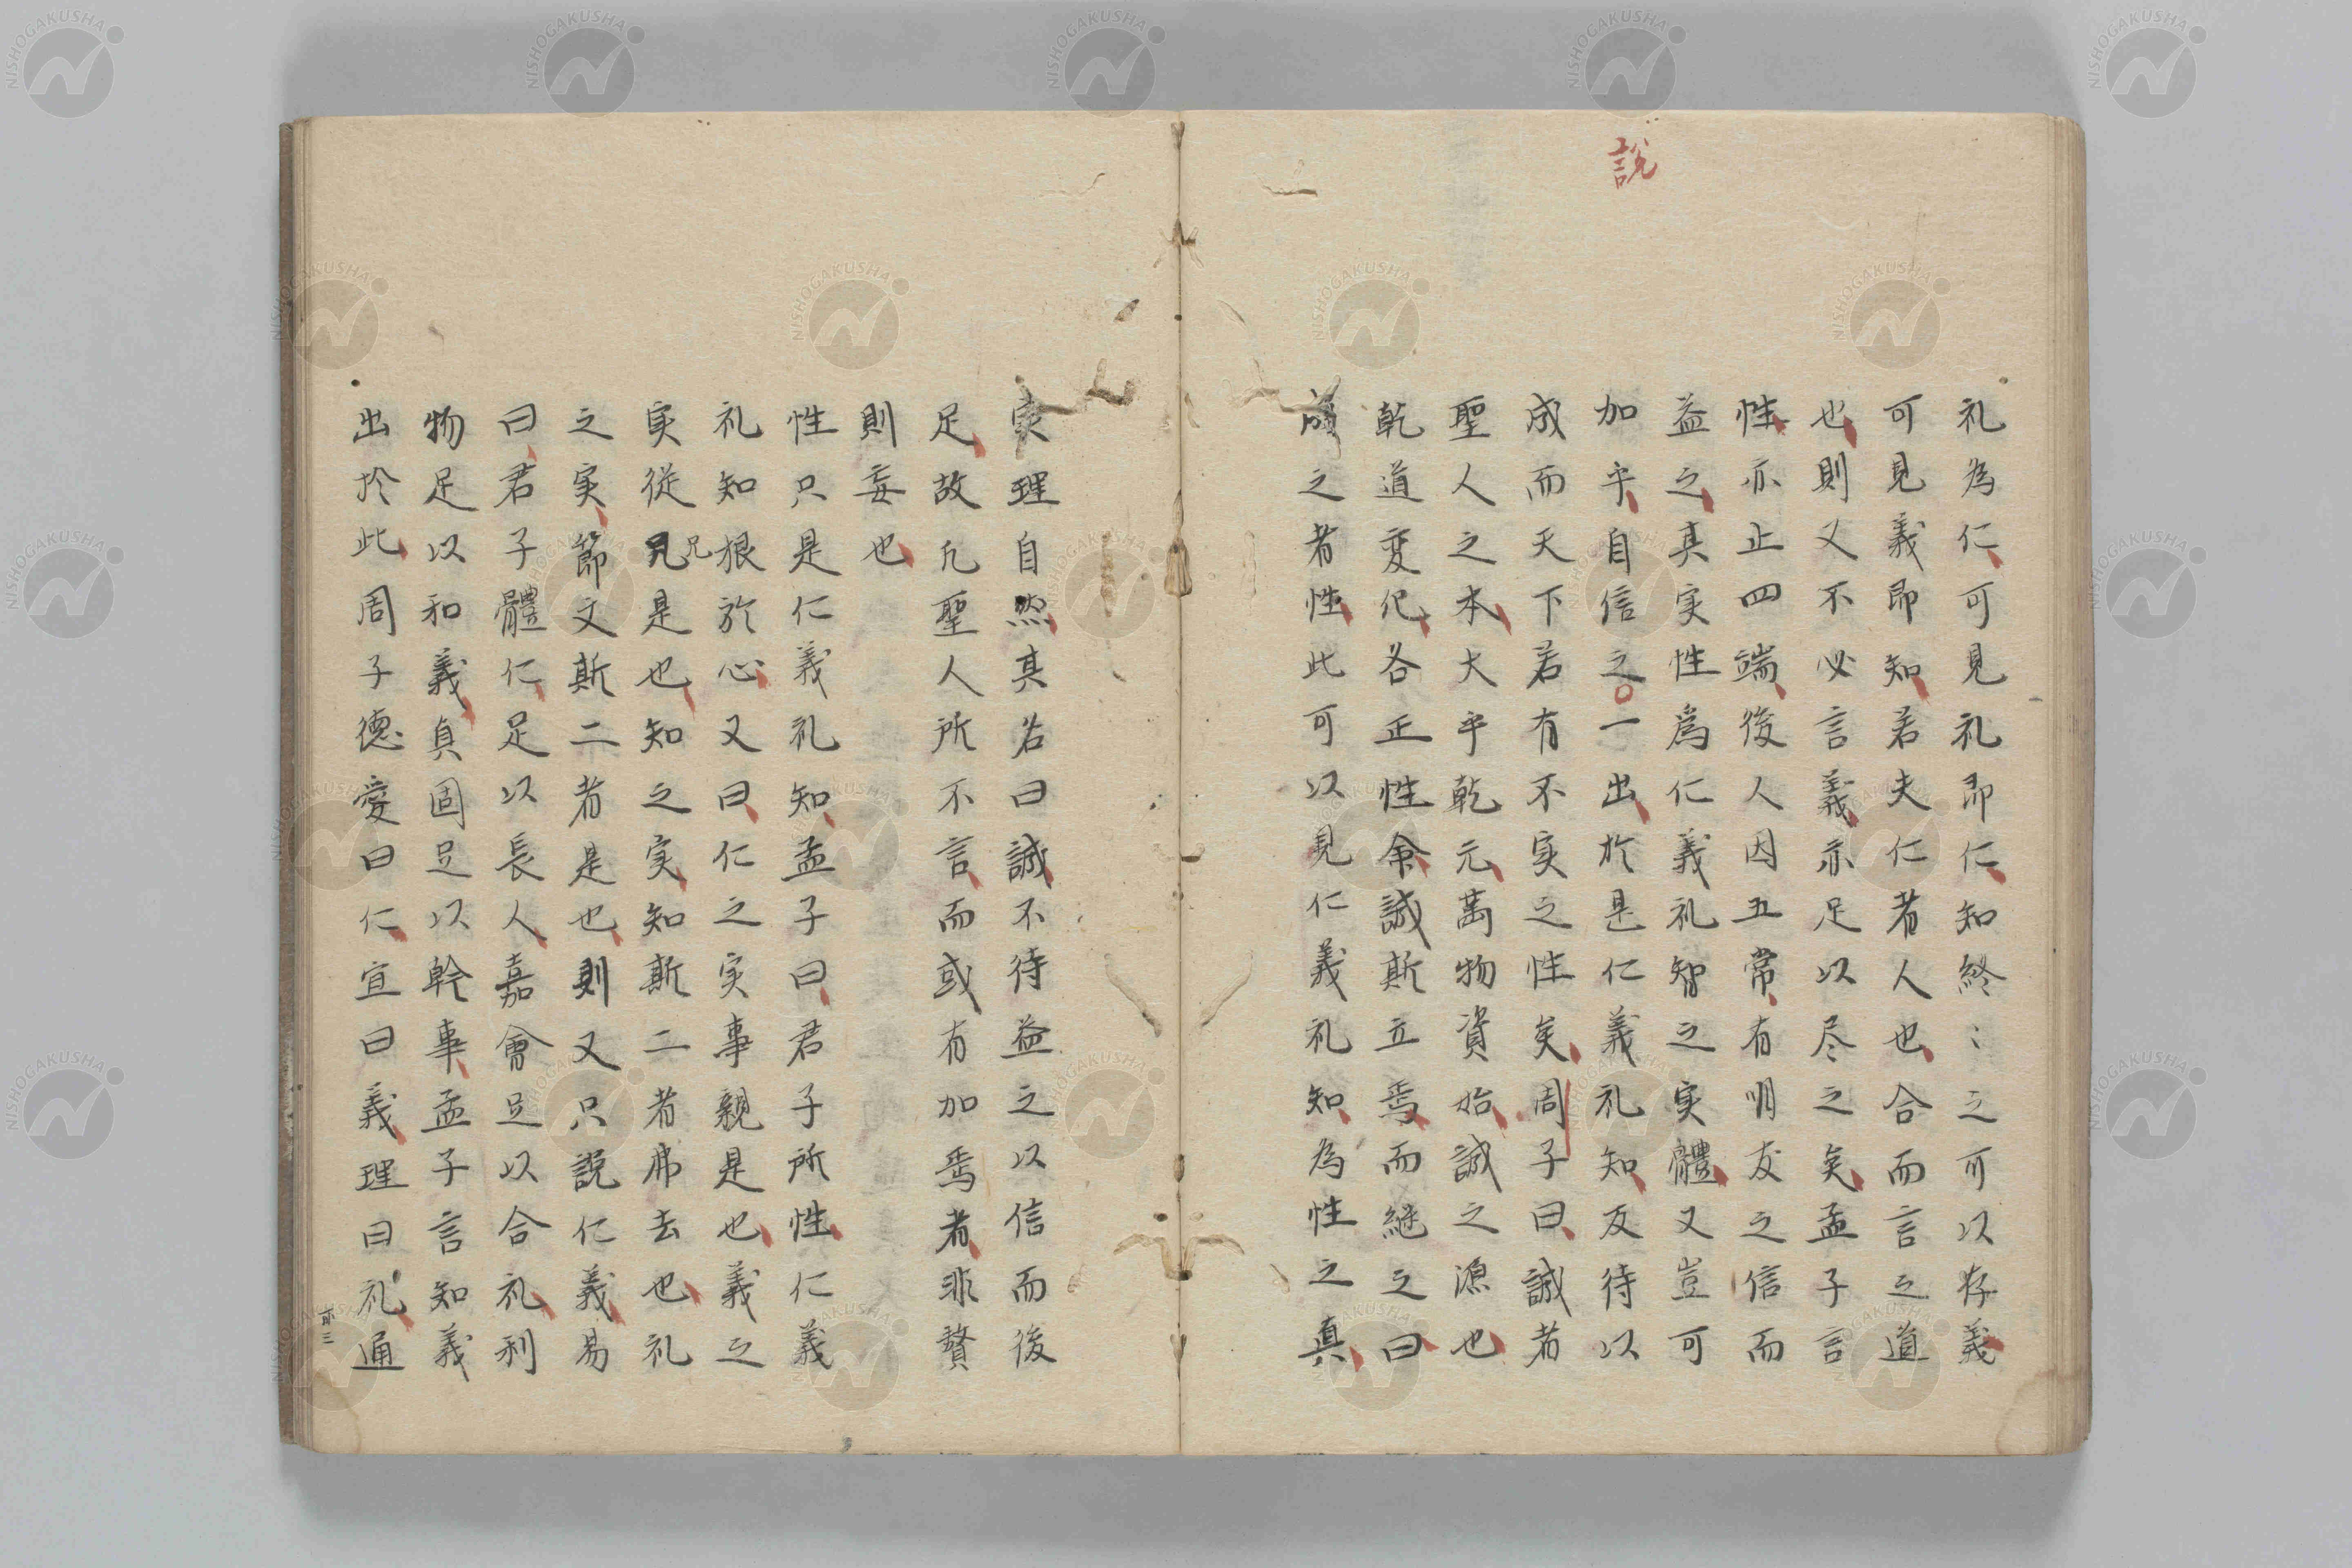 説
礼為仁可見礼即仁知終〻之可以存義
可見義即知若夫仁者人也合而言之道
也則又不必言義亦足以尽之矣孟子言
性亦止四端後人因五常有朋友之信而
益之真実性為仁義礼智之実體又豈可
加乎自信之一出於是仁義礼知反待以
成而天下若有不実之性矣周子曰誠者
聖人之本大乎乾元萬物資始誠之源也
乾道変化各正性命誠斯立焉而継之曰
成之者性此可以見仁義礼知為性之真
実理自然其名曰誠不待益之以信而後
足故凡聖人所不言而或有加焉者非贅
則妄也
性只是仁義礼知孟子曰君子所性仁義
礼知根於心又曰仁之実事親是也義之
実従兄兄是也知之実知斯二者弗去也礼
之実節文斯二者是也則又只説仁義易
曰君子體仁足以長人嘉會足以合礼利
物足以和義貞固足以幹事孟子言知義
出於此周子德愛曰仁宜曰義理曰礼通
亦三
NISHOGAKUSHA